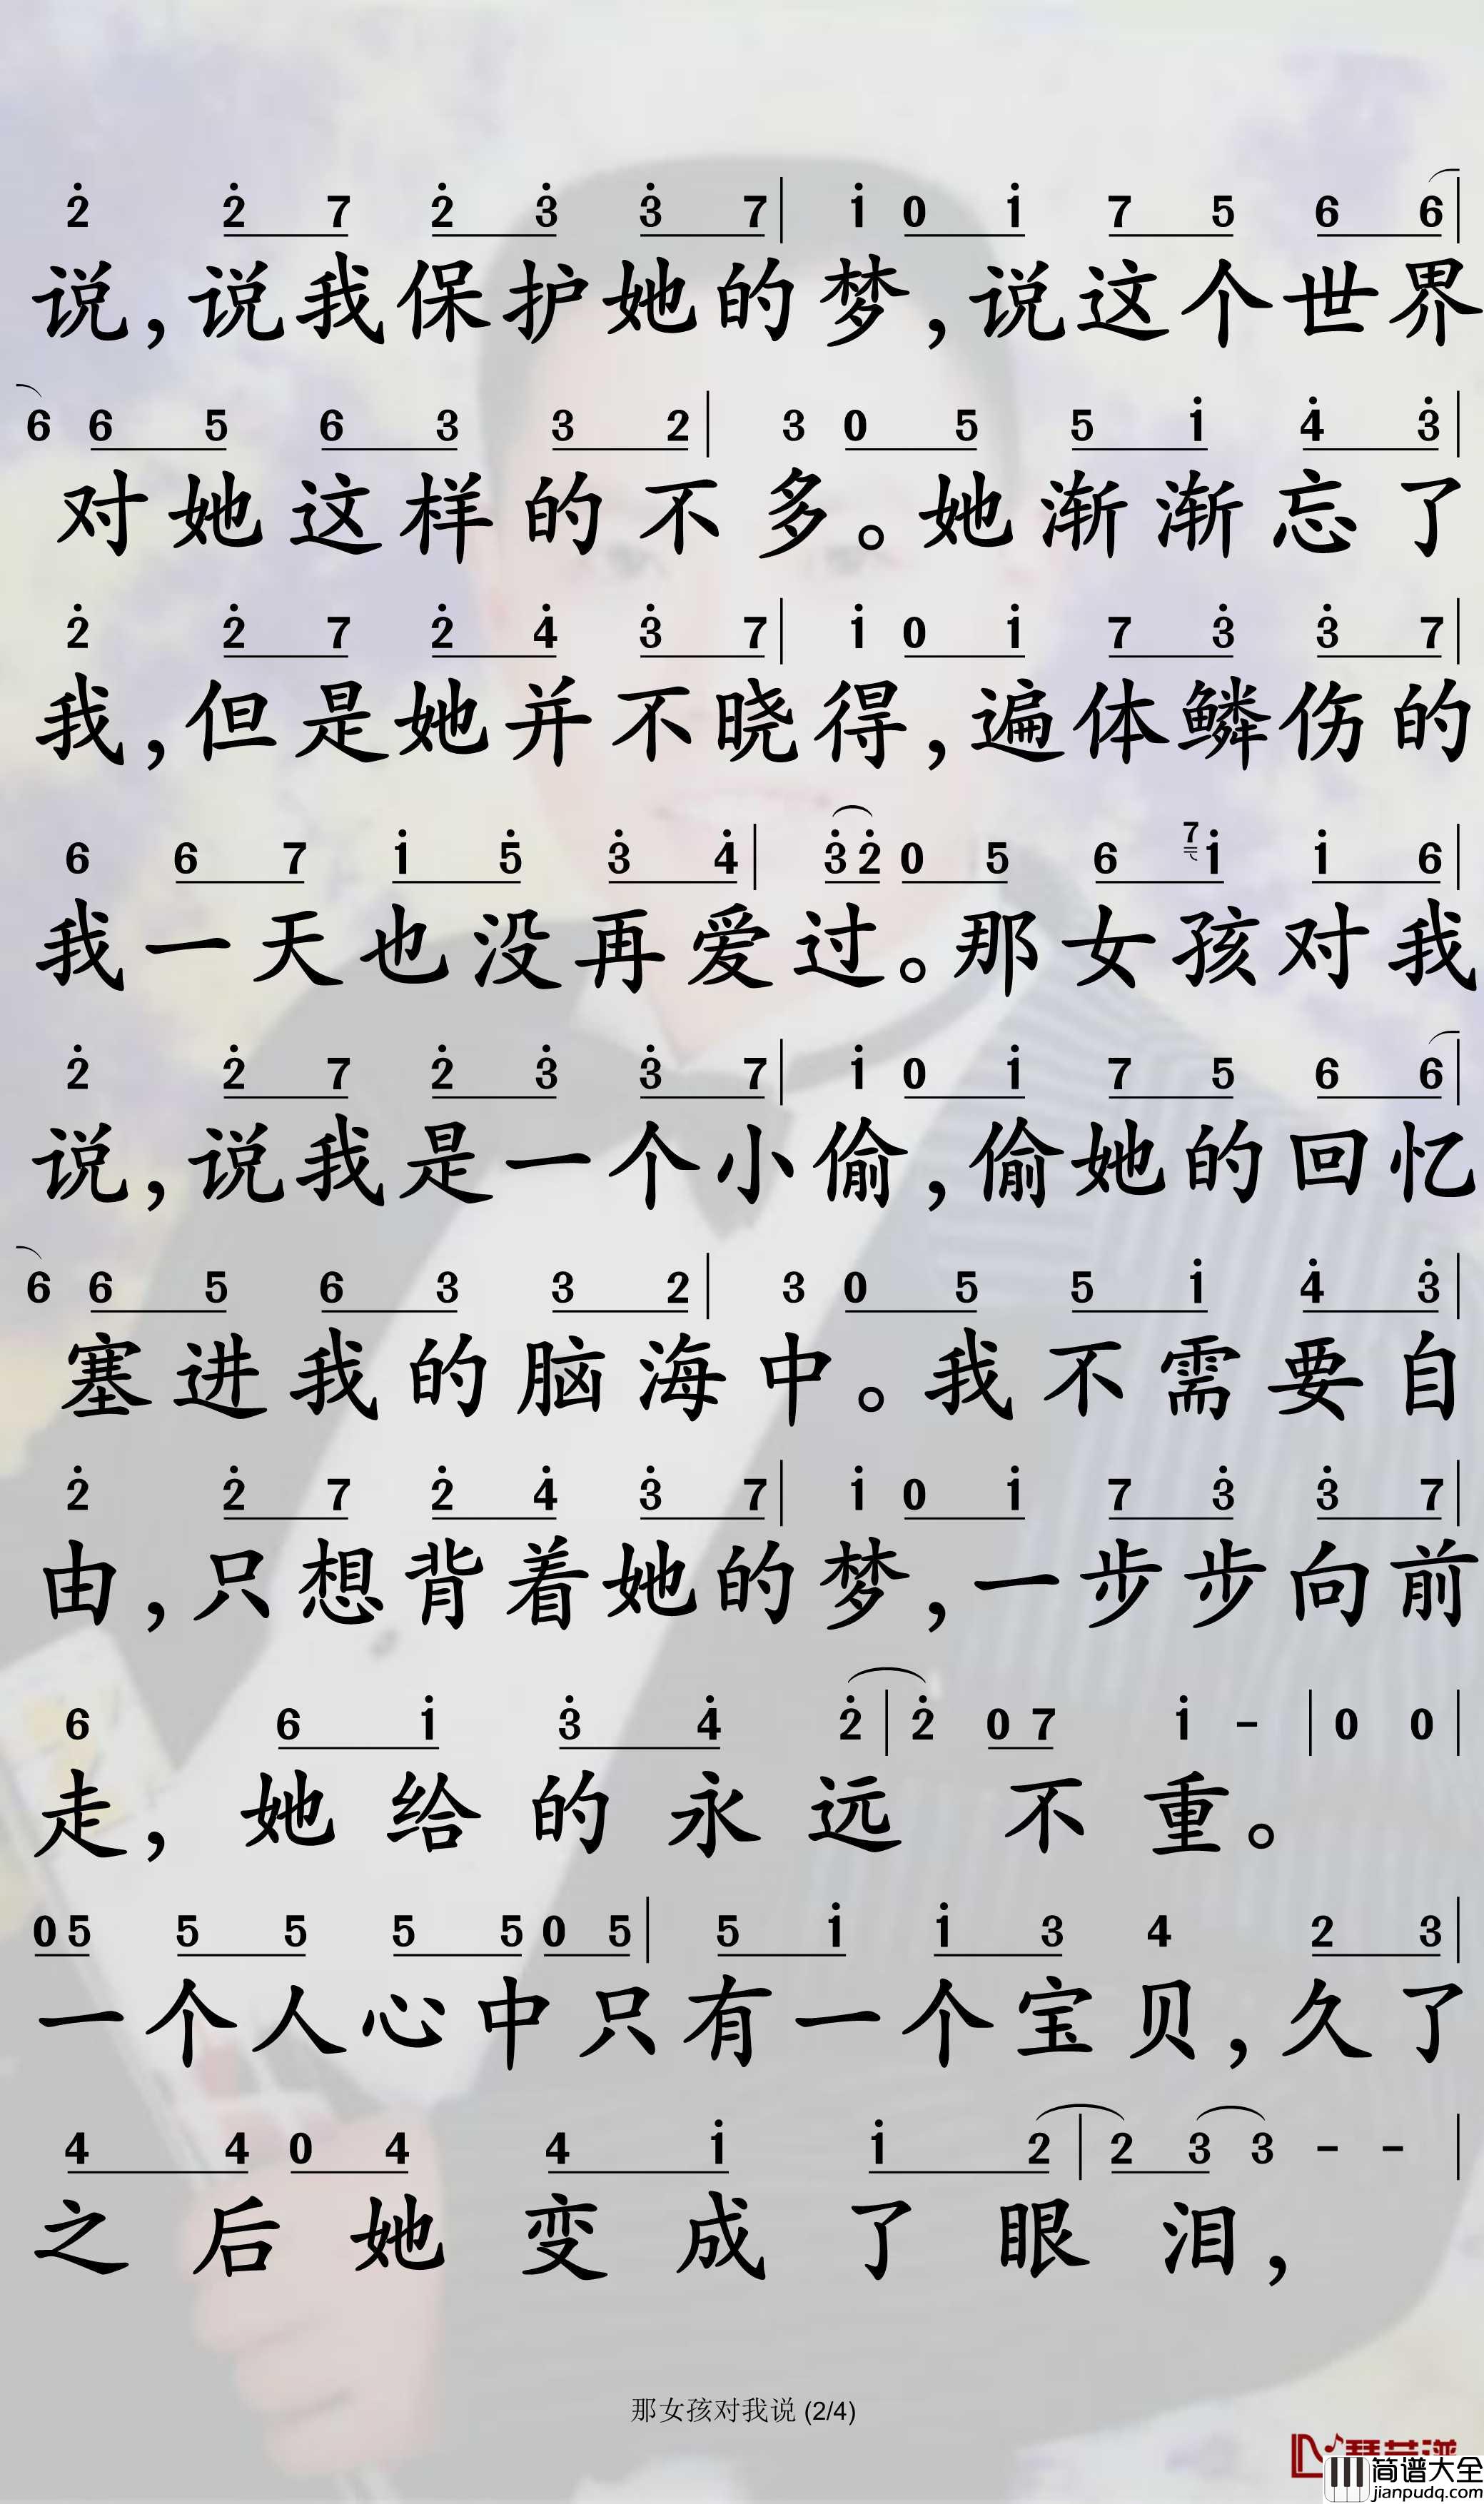 2̇ 2̇ 7 2̇ 3̇ 3̇ 7 | 1̇ 0 1̇ 7 5 6 6 |
说,说我保护她的梦,说这个世界
6 6 5 6 3 3 2 | 3 0 5 5 1̇ 4̇ 3̇ |
对她这样的不多。她渐渐忘了
2̇ 2̇ 7 2̇ 4̇ 3̇ 7 | 1̇ 0 1̇ 7 3̇ 3̇ 7 |
我,但是她并不晓得,遍体鳞伤的
6 6 7 1̇ 5̇ 3̇ 4̇ | 3̇ 2̇ 0 5 6 7 1̇ 1̇ 6 |
我一天也没再爱过。那女孩对我
2̇ 2̇ 7 2̇ 3̇ 3̇ 7 | 1̇ 0 1̇ 7 5 6 6 |
说,说我是一个小偷,偷她的回忆
6 6 5 6 3 3 2 | 3 0 5 5 1̇ 4̇ 3̇ |
塞进我的脑海中。我不需要自
2̇ 2̇ 7 2̇ 4̇ 3̇ 7 | 1̇ 0 1̇ 7 3̇ 3̇ 7 |
由,只想背着她的梦,一步步向前
6 6 1̇ 3̇ 4̇ 2̇ | 2̇ 0 7 1̇ - | 0 0 |
走,她给的永远不重。
0 5 5 5 5 5 0 5 | 5 1̇ 1̇ 3 4 2 3 |
一个人心中只有一个宝贝,久了
4 4 0 4 4 1̇ 1̇ 2 | 2 3 3 - - |
之后她变成了眼泪,
那女孩对我说 (2/4)
简谱大全
jianpudq.com